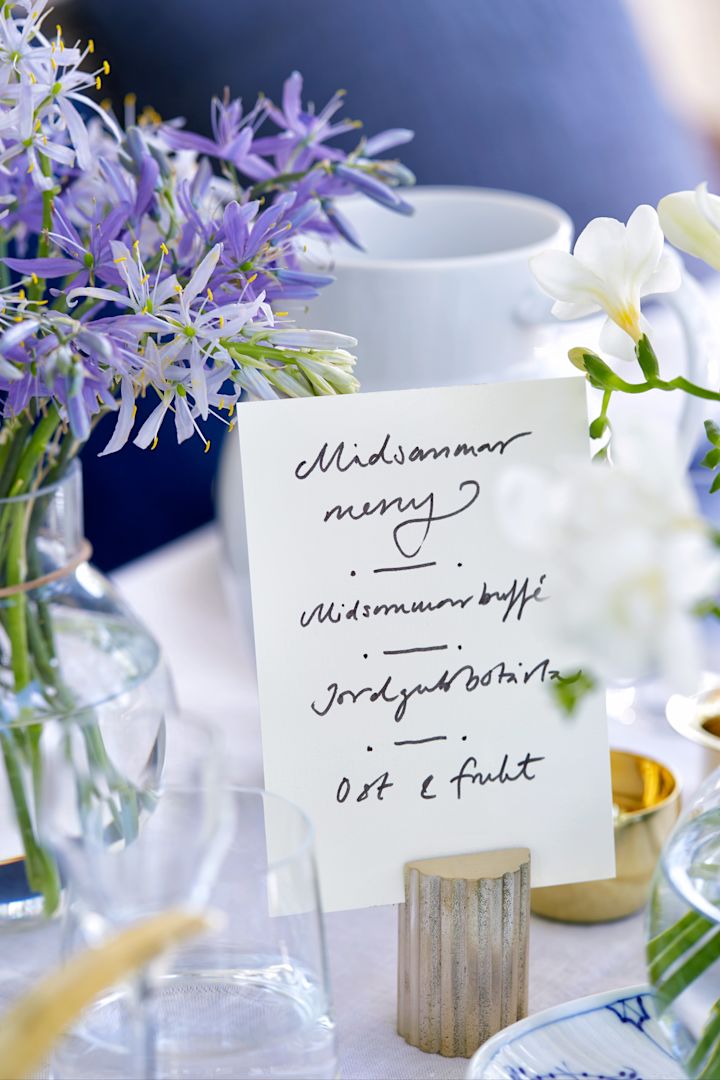 Midsommar
meny
Midsommarbuffé
Jordgubbstårta
Ost & frukt